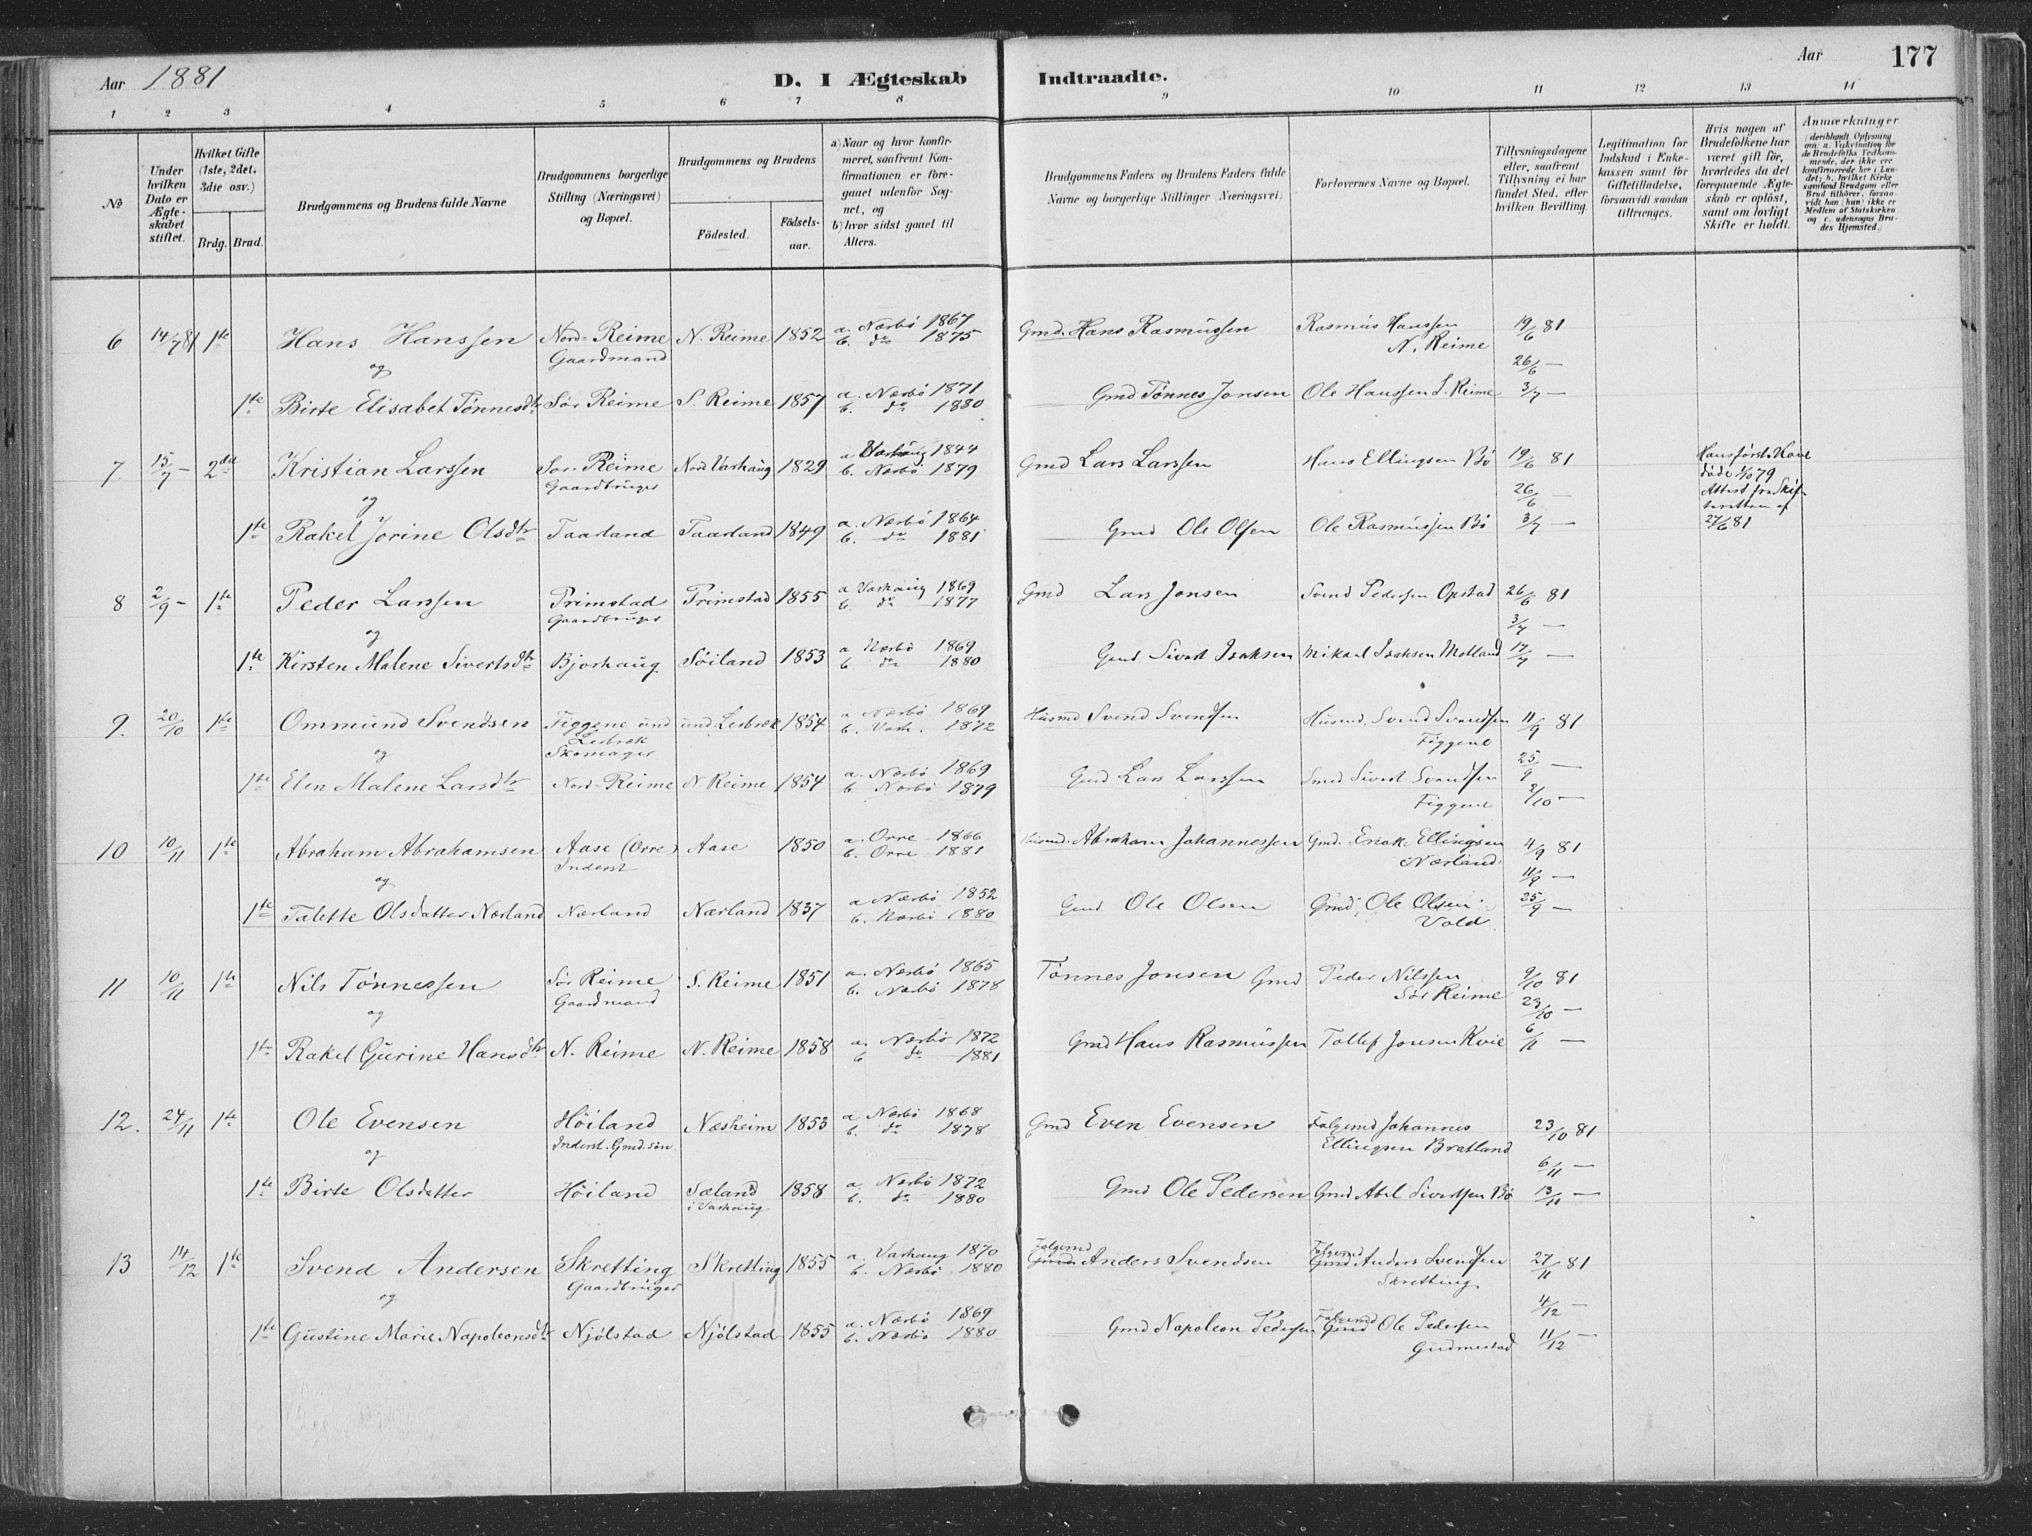 Aar 1881 D. I Ægteskab Indtraadte. Aar 177
1 2 3 4 5 6 7 8 9 10 11 12 13 14
No
Under hvilken Dato er Ægteskabet stiftet.
Hvilket Gifte (1ste, 2det, 3die osv.)
Brdg. Brud.
Brudgommens og Brudens fulde Navne
Brudgommens borgerlige Stilling (Næringsvei) og Bopæl.
Brudgommens og Brudens
Fødested. Fødsels-aar.
a) Naar og hvor konfirmeret, saafremt Konfirmationen er foregaaet udenfor Sognet, og
b) hvor sidst gaaet til Alters.
Brudgommens Faders og Brudens Faders fulde Navne og borgerlige Stillinger (Næringsvei)
Forlovernes Navne og Bopæl.
Tillysningsdagene eller, saafremt Tillysning ei har fundet Sted, efter hvilken Bevilling.
Legitimation for Indskud i Enkekassen samt for Giftetilladelse, forsaavidt saadan tiltrænges.
Hvis nogen af Brudefolkene har været gift før, hvorledes da det foregaaende Ægteskab er opløst, samt om lovligt Skifte er holdt.
Anmærkninger
6 14/7 81 1ste Hans Hanssen Nord-Reime Gaardmand N. Reime 1852 a. Nærbö 1867 b. do 1875 Gmd. Hans Rasmussen Rasmus Hanssen N. Reime 19/6 81
og 26/6 —
1ste Birte Elisabet Tönnesdtr Sör Reime S. Reime 1857 a. Nærbö 1871 b. do 1880 Gmd Tönnes Jonsen Ole Hanssen S. Reime 3/7 —
7 15/7 — 2det Kristian Larssen Sör Reime Gaardbruger Nord Varhaug 1829 a Varhaug 1844 b. Nærbö 1879 Gmd Lars Larssen Hans Ellingsen Bö 19/6 81 Hans første Kone döde 1/10 79 Attest fra Skifteretten af 27/6 81
og 26/6 —
1ste Rakel Jorine Olsdtr Taarland Taarland 1849 a. Nærbö 1864 b. do 1881 Gmd Ole Olsen Ole Rasmussen Bö 3/7 —
8 2/9 — 1ste Peder Larssen Primstad Gaardbruger Primstad 1855 a Varhaug 1869 b. do 1877 Gmd Lars Jonsen Svend Pedersen Opstad 26/6 81
og 3/7 —
1ste Kirsten Malene Sivertsdtr Bjorhaug Söiland 1853 a Nærbö 1869 b do 1880 Gmd Sivert Isaksen Mikael Isaksen Motland 17/7 —
9. 20/10 1ste Ommund Svendsen Figgene und Lerbræk Skomager und. Lerbræk 1854 a Nærbö 1869 b. Varh. 1872 Husmd Svend Svendsen Husmd. Svend Svendsen Figgene 11/9 81
og 25/9 —
1ste Elen Malene Larsdtr Nord-Reime N. Reime 1854 a. Nærbö 1869 b. Nærbö 1879 Gmd Lars Larssen Smed Sivert Svendsen Figgene 2/10 —
10 10/11 1ste Abraham Abrahamsen Aase (Orre) Inderst Aase 1850 a. Orre 1866 b. Orre 1881 Husmd. Abraham Johannessen Gmd. Enok Ellingsen Nærland 4/9 81
og 11/9 —
1ste Talette Olsdatter Nærland Nærland Nærland 1837 a Nærbö 1852 b. Nærbö 1880 Gmd. Ole Olsen Gmd. Ole Olsen Vold 25/9 —
11 10/11 1ste Nils Tönnessen Sör Reime Gaardmand S. Reime 1851 a. Nærbö 1865 b. Nærbö 1878 Tönnes Jonsen Gmd Peder Nilssen Sör Reime 9/10 81
og 23/10 —
1ste Rakel Gurine Hansdtr N. Reime N. Reime 1858 a. Nærbö 1872 b do 1881 Gmd Hans Rasmussen Tollef Jonsen Kvie 6/11 —
12. 24/11 1ste Ole Evensen Höiland Inderst. Gmd. sön. Næsheim 1853 a. Nærbö 1868 b. do 1878 Gmd Even Evensen Folgemd Johannes Ellingsen Bratland 23/10 81
og 6/11 —
1ste Birte Olsdatter Höiland Sæland i Varhaug 1858 a. Nærbö 1872 b. do 1880 Gmd Ole Pedersen Gmd Abel Sivertsen Bö 13/11 —
13 14/12 1ste Svend Andersen Skretting Gaardbruger Skretting 1855 a. Varhaug 1870 b. Nærbö 1880 Folgemd Gmd Anders Svendsen Folgemd Gmd Anders Svendsen Skretting 27/11 81
og 4/12 —
1ste Gustine Marie Napoleonsdtr Njölstad Njölstad 1855 a. Nærbö 1869 b. Nærbö 1880 Gmd Napoleon Pedersen Folgemd Gmd Ole Pedersen Gudmestad 11/12 —